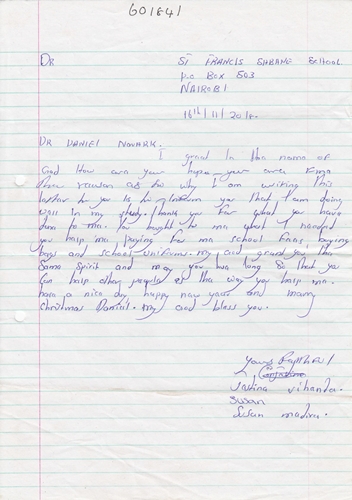 601841
DR ST FRANCIS SHBANE SCHOOL
P.O BOX 503
NAIROBI
16th/11/2014.
DR DANIEL NOVARK.
I in the name of
God How are you hope your are
The reason as to why I am writing This
letter to you is to inform you that I am doing
well in my study. Thank you for what you have
done to me. You bought to me what I needed
you help me paying for me school fees, buying
bags and school uniforms. My God grand you the
Same Spirit and may you live long so that you
Can help other people as the way you help me.
have a nice day happy new year and marry
Christmas Daniel. My God bless you.
Yours Faithful
vihanda.
SUSAN
Susan madiva.